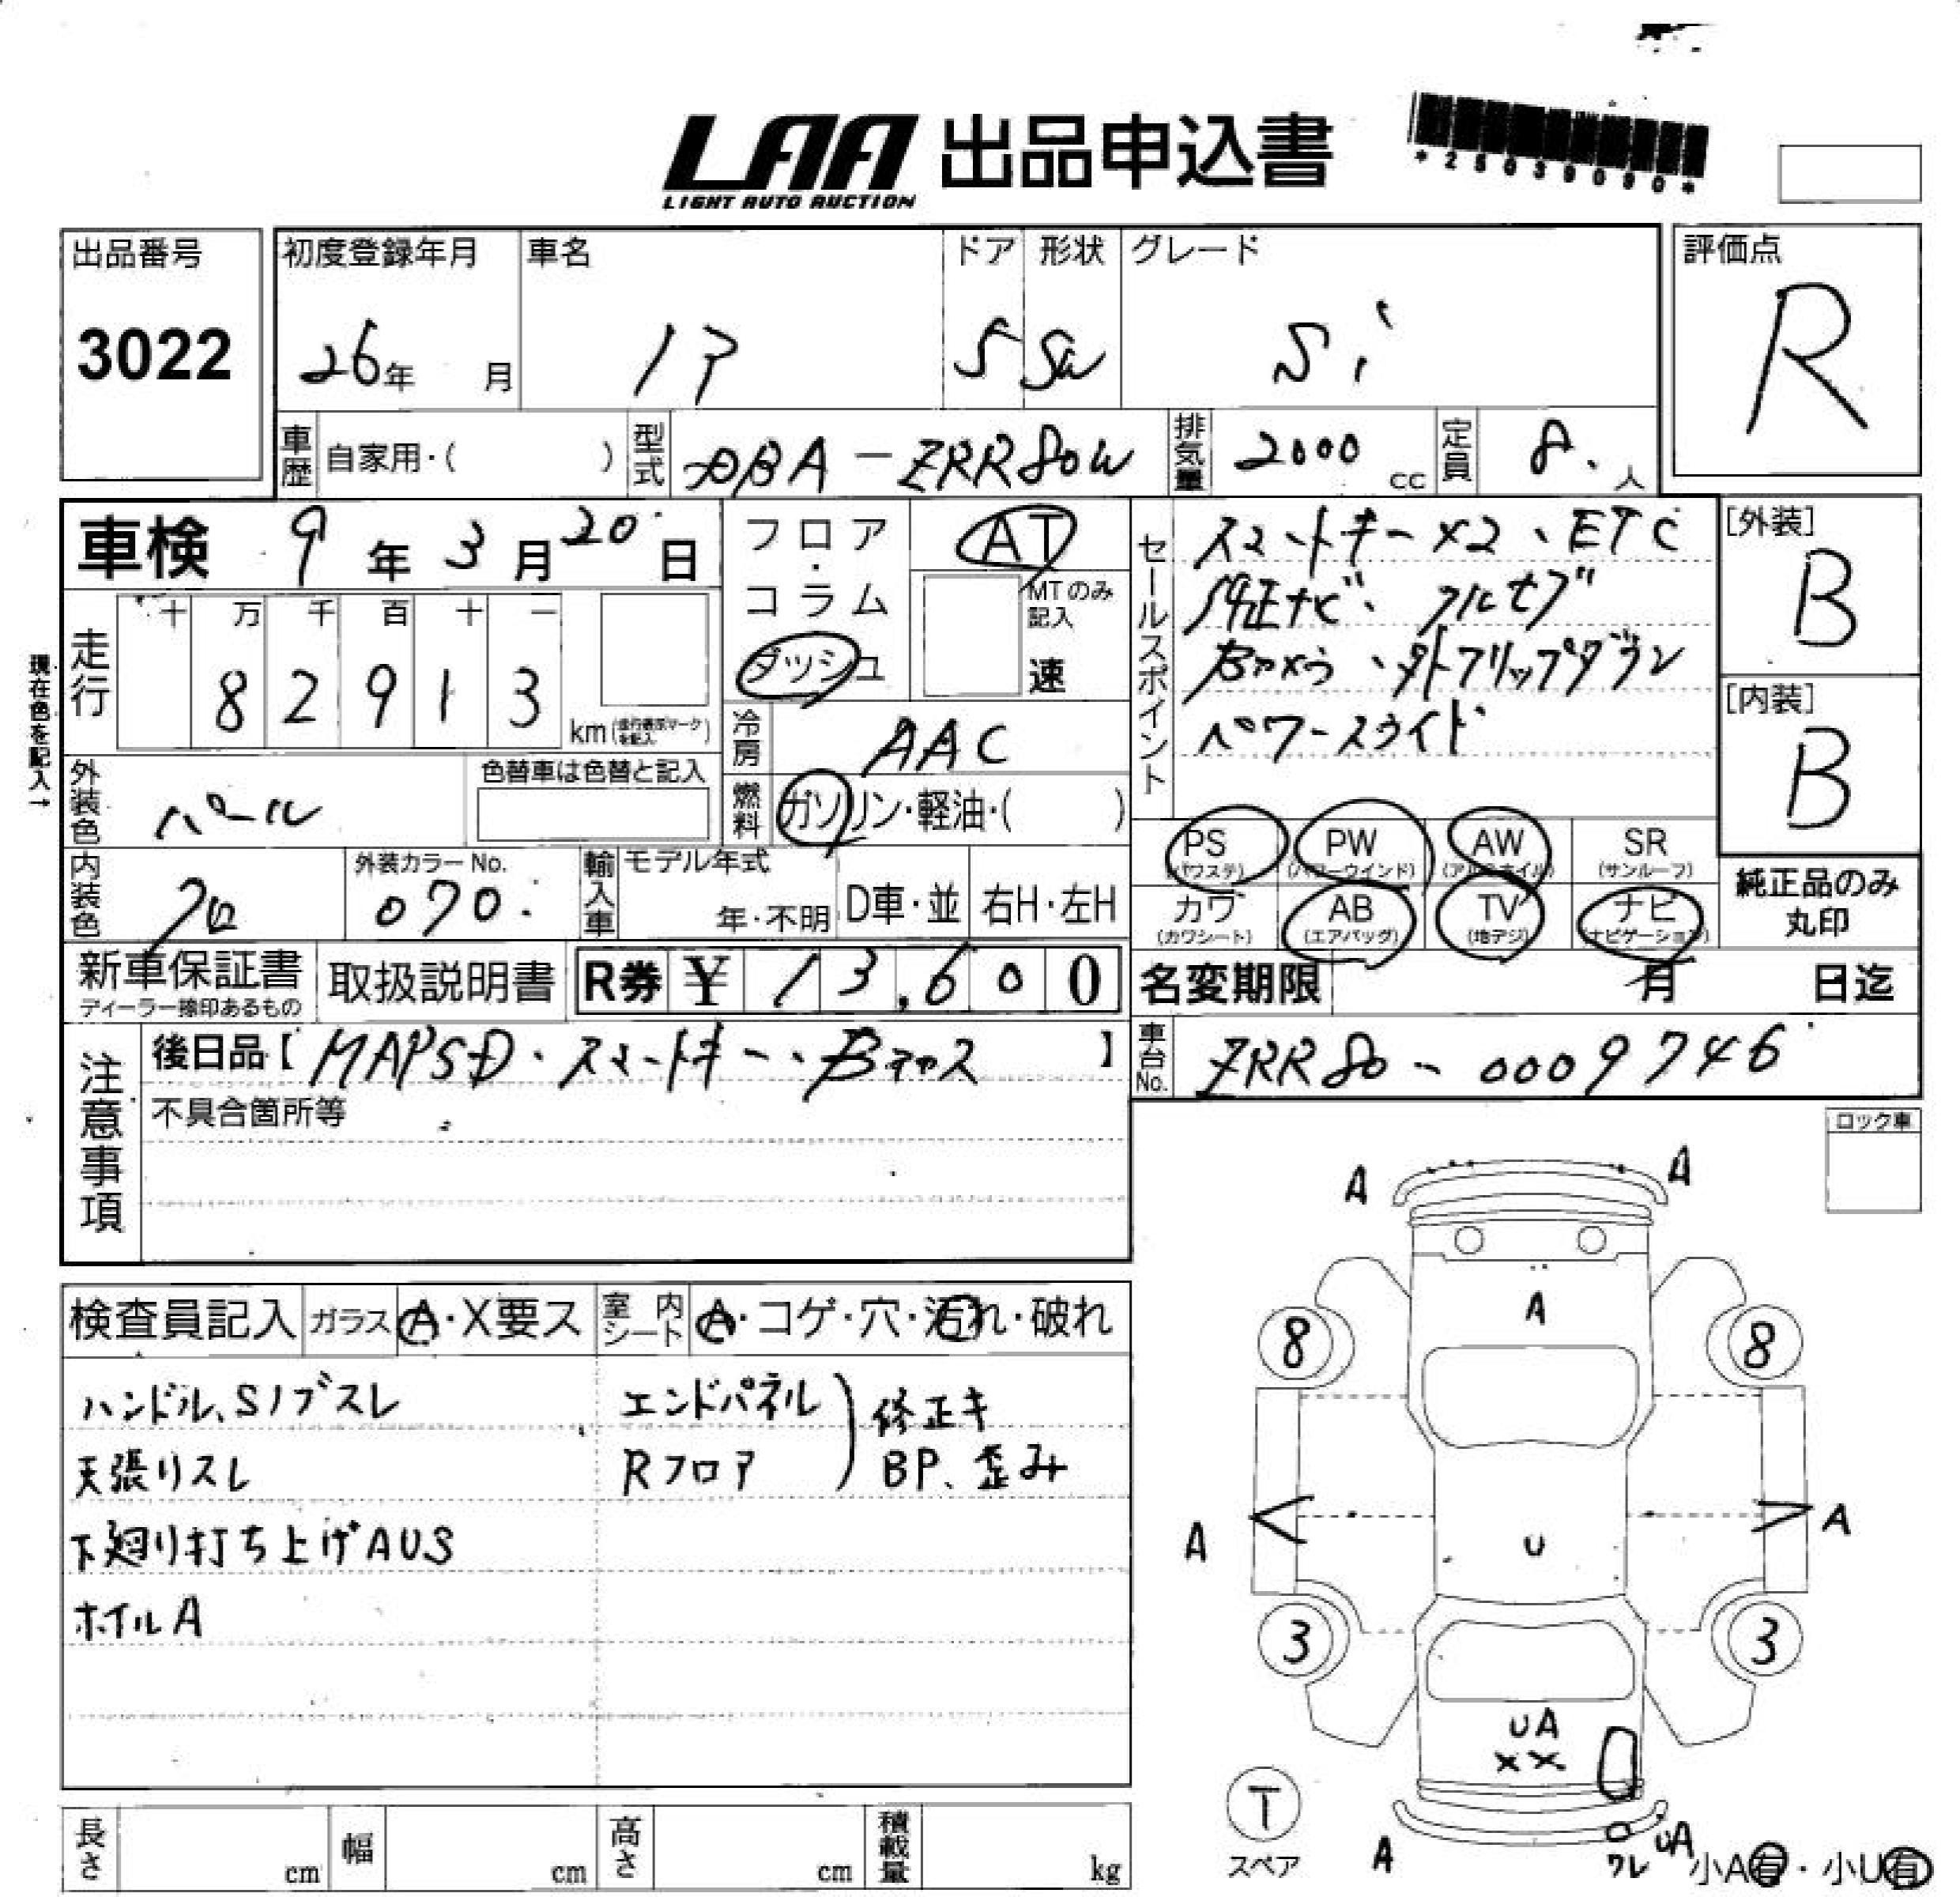 LAA 出品申込書
LIGHT AUTO AUCTION
*25039090*
出品番号
3022
初度登録年月
26年 月
車名
ドア
5
形状
SW
グレード
Si
評価点
R
車歴 自家用・( )
型式 DBA-ZRR80W
排気量 2000 cc
定員 8 人
車検 9年3月20日
現在色を記入→
走行
十 万 千 百 十 一
8 2 9 1 3
km
フロア・コラム
ダッシュ
AT
MTのみ記入
速
冷房 AAC
燃料 ガソリン・軽油・( )
セールスポイント
スマートキー×2、ETC
純正ナビ、フルセグ
Bカメラ、外フリップダウン
パワースライド
[外装]
B
[内装]
B
外装色 パール
色替車は色替と記入
内装色 クロ
外装カラーNo.
070
輸入車 モデル年式
年・不明 D車・並 右H・左H
PS
(パワステ)
PW
(パワーウインド)
AW
(アルミホイル)
SR
(サンルーフ)
カワ
(カワシート)
AB
(エアバッグ)
TV
(地デジ)
ナビ
(ナビゲーション)
純正品のみ
丸印
新車保証書
ディーラー捺印あるもの
取扱説明書
R券 ¥ 13,600
名変期限 月 日迄
注意事項
後日品【MAPSD・スマートキー・Bキャス】
不具合箇所等
車台No. ZRR80-0009746
ロック車
検査員記入 ガラス A・X要ス 室内シート A・コゲ・穴・汚れ・破れ
ハンドル、Sノブスレ
天張りスレ
下廻り打ち上げAUS
ホイルA
エンドパネル
Rフロア
修正キ
BP、歪み
A A
A
8 8
A A
U
3 3
UA
××
T
スペア
A
ワレ
UA
小A有・小U有
長さ cm 幅 cm 高さ cm 積載量 kg